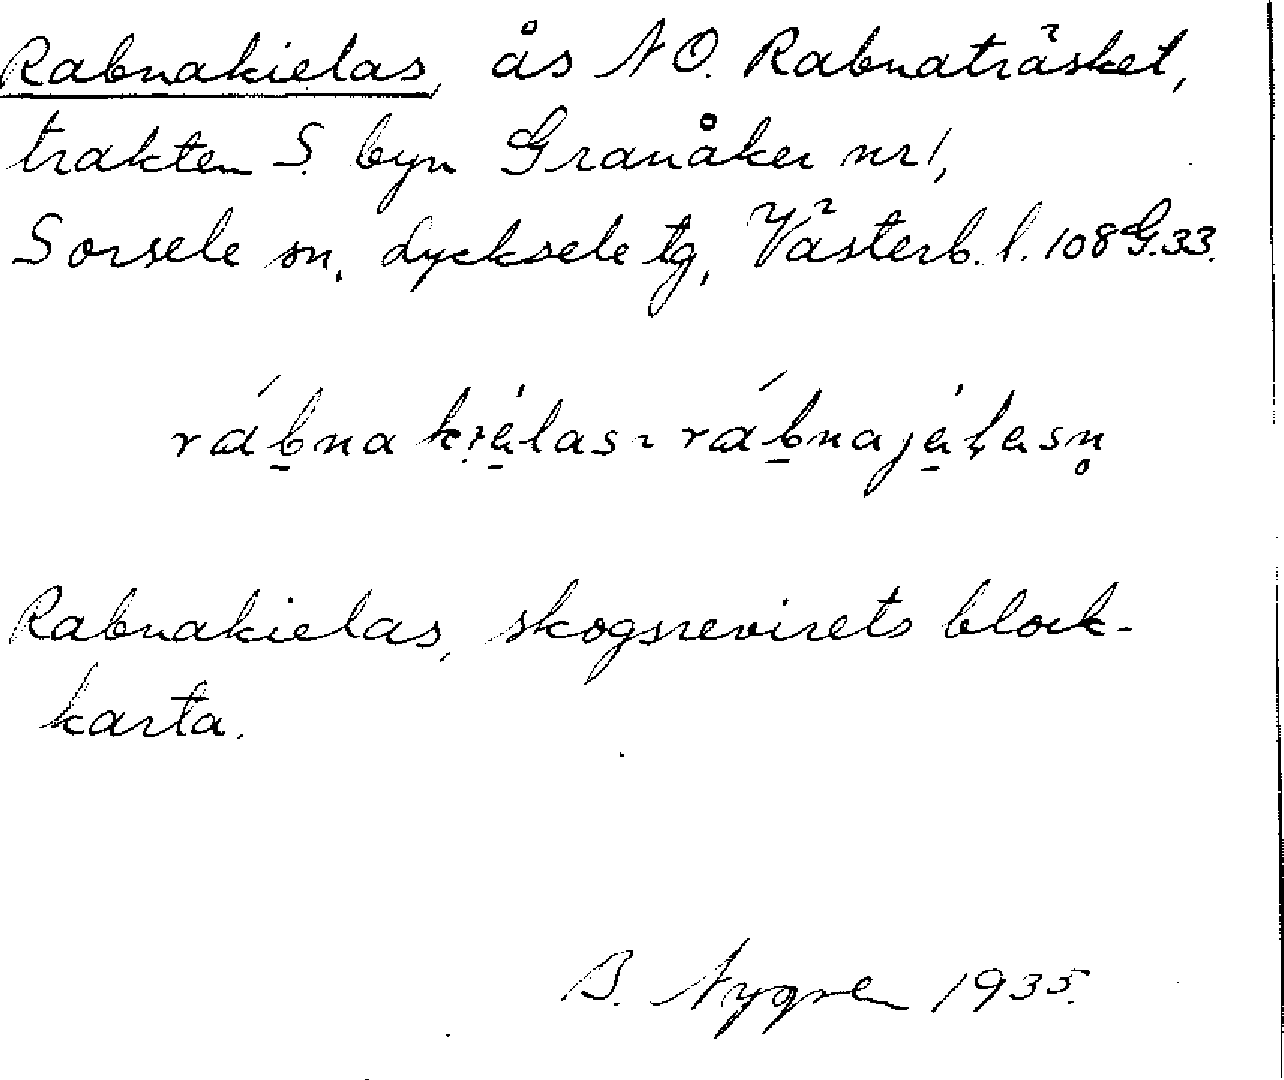 Rabnakielas, ås N O. Rabnaträsket,
trakten S. byn Granåker nr 1,
Sorsele sn, Lycksele tg, Västerb. l. 108 G. 33.
Rabnakielas, skogsrevirets block-
karta.
B. Nygren 1935.